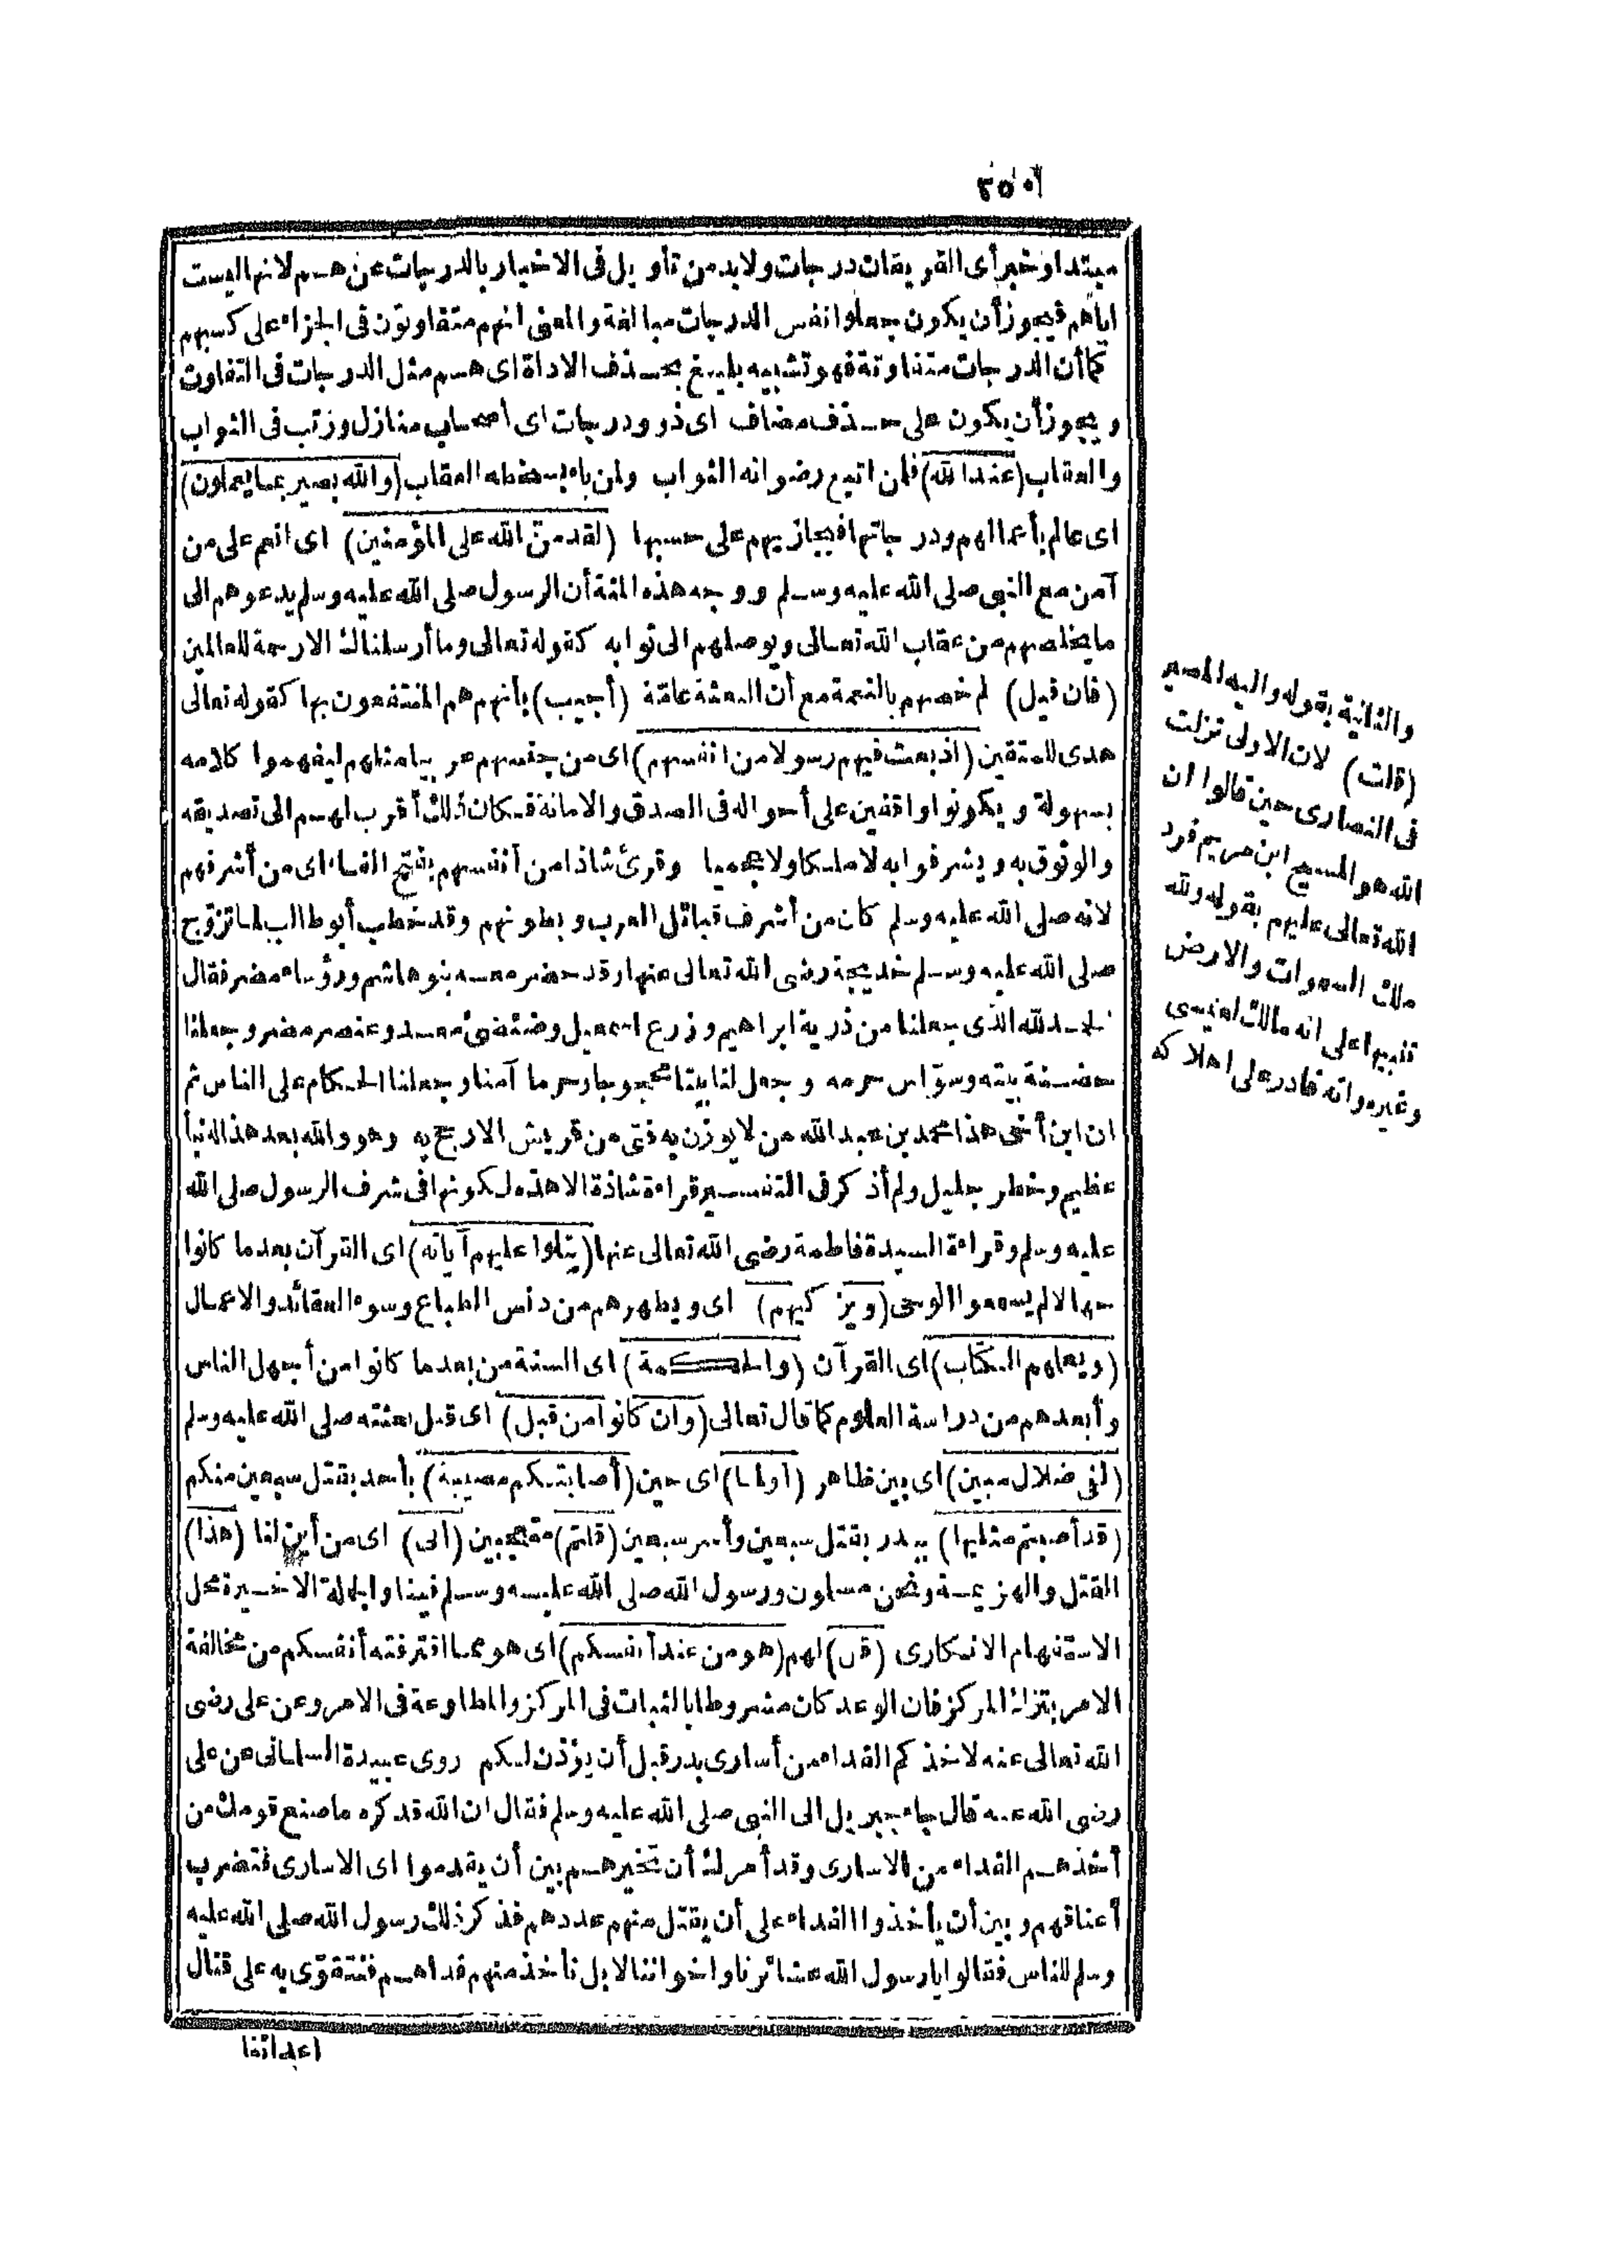 ٢٥٠
مبتدا وخبر أى الفريقان درجات ولابد من تأويل فى الاخبار بالدرجات عن هم لانها ليست
اياهم فيجوز أن يكون جعلوا نفس الدرجات مبالغة والمعنى انهم متفاوتون فى الجزاء على كسبهم
كما أن الدرجات متفاوتة فهو تشبيه بليغ بحذف الاداة اى هم مثل الدرجات فى التفاوت
ويجوز أن يكون على حذف مضاف اى ذوو درجات اى اصحاب منازل ورتب فى الثواب
والعقاب (عند الله) فلمن اتبع رضوانه الثواب ولمن باء بسخطه العقاب (والله بصير بما يعملون)
اى عالم بأعمالهم ودرجاتها فيجازيهم على حسبها (لقد منّ الله على المؤمنين) اى انعم على من
آمن مع النبى صلى الله عليه وسلم ووجه هذه المنة أن الرسول صلى الله عليه وسلم يدعوهم الى
ما يخلصهم من عقاب الله تعالى ويوصلهم الى ثوابه كقوله تعالى وما أرسلناك الا رحمة للعالمين
(فان قيل) لم خصهم بالنعمة مع أن البعثة عامّة (أجيب) بأنهم هم المنتفعون بها كقوله تعالى
هدى للمتقين (اذ بعث فيهم رسولا من انفسهم) اى من جنسهم عربيا مثلهم ليفهموا كلامه
بسهولة ويكونوا واقفين على أحواله فى الصدق والامانة فكان ذلك أقرب لهم الى تصديقه
والوثوق به ويشرفوا به لا ملكا ولا عجميا وقرئ شاذا من أنفسهم بفتح الفاء اى من أشرفهم
لانه صلى الله عليه وسلم كان من أشرف قبائل العرب وبطونهم وقد خطب أبو طالب لما تزوّج
صلى الله عليه وسلم خديجة رضى الله تعالى عنها وقد حضر معه بنو هاشم ورؤساء مضر فقال
الحمد لله الذى جعلنا من ذرية ابراهيم وزرع اسمعيل وضئضئ معد وعنصر مضر وجعلنا
حضنة بيته وسوّاس حرمه وجعل لنا بيتا محجوجا وحرما آمنا وجعلنا الحكام على الناس ثم
ان ابن أخى هذا محمد بن عبد الله من لا يوزن به فتى من قريش الا رجح به وهو والله بعد هذا له نبأ
عظيم وخطر جليل ولم أذكر فى التفسير قراءة شاذة الا هذه لكونها فى شرف الرسول صلى الله
عليه وسلم وقراءة السيدة فاطمة رضى الله تعالى عنها (يتلوا عليهم آياته) اى القرآن بعد ما كانوا
جهالا لم يسمعوا الوحى (ويزكيهم) اى ويطهرهم من دنس الطباع وسوء العقائد والاعمال
(ويعلمهم الكتاب) اى القرآن (والحكمة) اى السنة من بعد ما كانوا من أجهل الناس
وأبعدهم من دراسة العلوم كما قال تعالى (وان كانوا من قبل) اى قبل بعثته صلى الله عليه وسلم
(لفى ضلال مبين) اى بين ظاهر (أولما) اى حين (أصابتكم مصيبة) بأحد بقتل سبعين منكم
(قد أصبتم مثليها) ببدر بقتل سبعين وأسر سبعين (قلتم) متعجبين (أنى) اى من أين لنا (هذا)
القتل والهزيمة ونحن مسلمون ورسول الله صلى الله عليه وسلم فينا والجملة الاخيرة محل
الاستفهام الانكارى (قل) لهم (هو من عند أنفسكم) اى هو مما اقترفته أنفسكم من مخالفة
الامر بترك المركز فان الوعد كان مشروطا بالثبات فى المركز والمطاوعة فى الامر وعن على رضى
الله تعالى عنه لاخذكم الفداء من أسارى بدر قبل أن يؤذن لكم روى عبيدة السلمانى عن على
رضى الله عنه قال جاء جبريل الى النبى صلى الله عليه وسلم فقال ان الله قد كره ما صنع قومك من
أخذهم الفداء من الاسارى وقد أمرك أن تخيرهم بين أن يقدموا اى الاسارى فتضرب
أعناقهم وبين أن يأخذوا الفداء على أن يقتل منهم عددهم فذكر ذلك رسول الله صلى الله عليه
وسلم للناس فقالوا يا رسول الله عشائرنا واخواننا لا بل نأخذ منهم فداهم فنتقوّى به على قتال
اعدائنا
والثانية بقوله واليه المصير
(قلت) لان الاولى نزلت
فى النصارى حين قالوا ان
الله هو المسيح ابن مريم فرد
الله تعالى عليهم بقوله ولله
ملك السموات والارض
تنبيها على انه مالك لعيسى
وغيره وانه قادر على اهلاكه